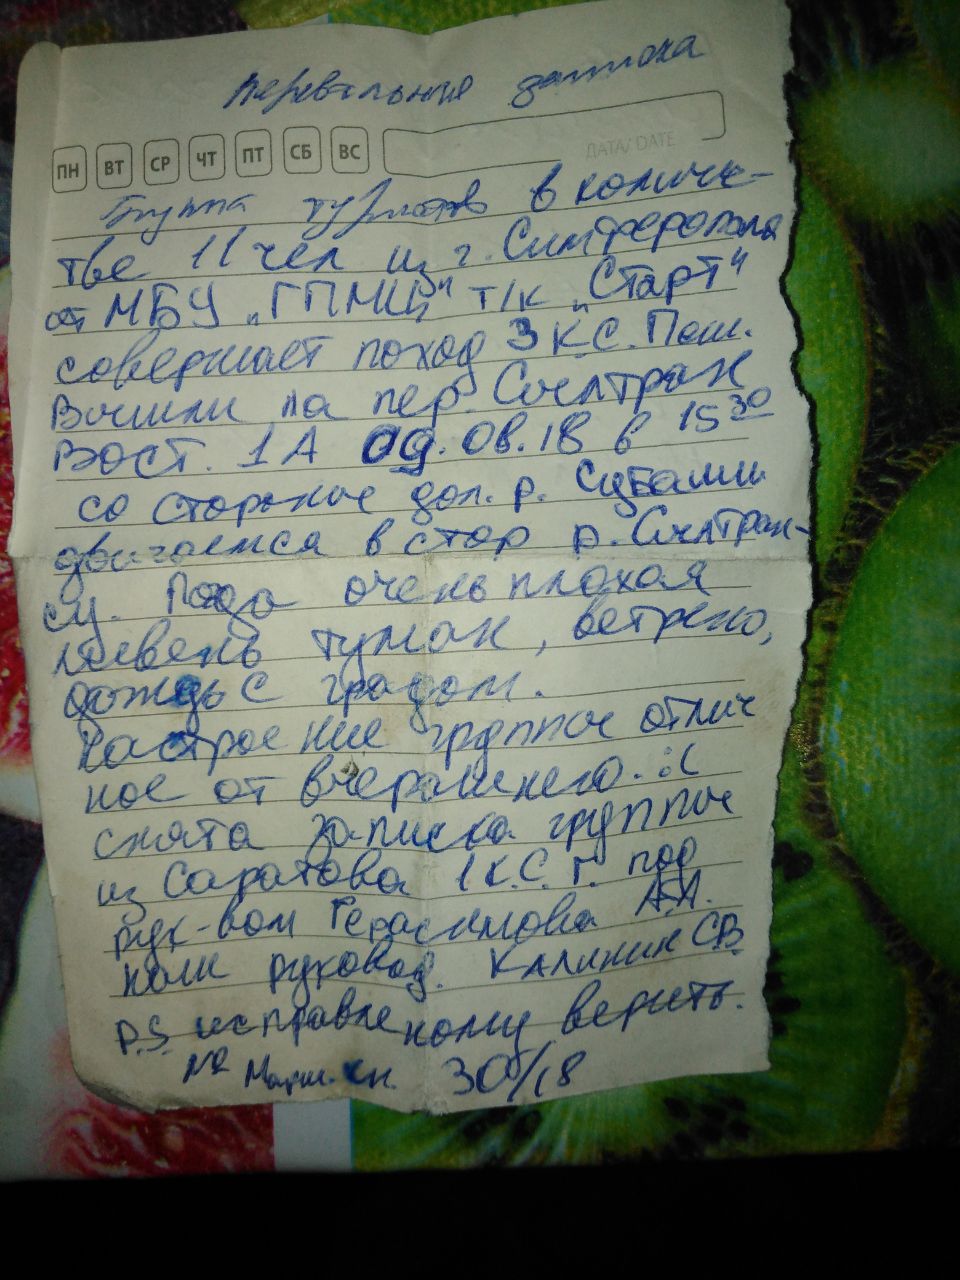 Перевальная записка
ПН ВТ СР ЧТ ПТ СБ ВС
ДАТА/ DATE
Группа туристов в количе-
тве 11 чел из г. Симферополя
от МБУ „ГПМЦ" т/к „Старт"
совершает поход 3 К.С. Пеш.
Вышли на пер.
Вост. 1А 09.08.18 в 15 30
со стороны дол. р.
двигаемся в стор р.
су. Погода очень плохая
ливень туман, ветрено,
дождь с градом.
Настроение группы отлич
ное от вчерашнего. :(
снята записка группы
из Саратова 1 К.С. Г. под
рук-вом Герасимова А.А.
наш руковод. Калинин СВ
P.S. исправленному верить.
№ Марш. кн. 30/18